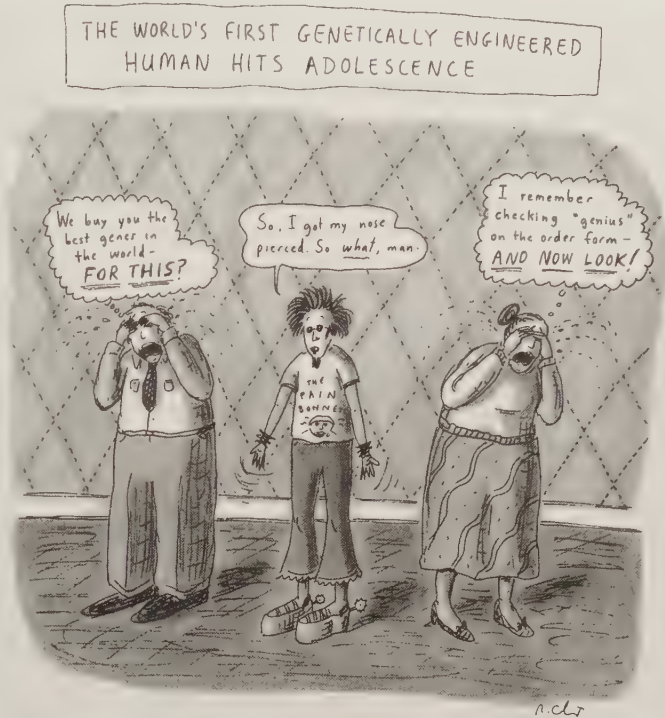 THE WORLD'S FIRST GENETICALLY ENGINEERED
HUMAN HITS ADOLESCENCE
We buy you the
best genes in
the world-
FOR THIS?
So, I got my nose
pierced. So what, man.
I remember
checking "genius"
on the order form-
AND NOW LOOK!
THE
PAIN
BONNETS
R. Chst